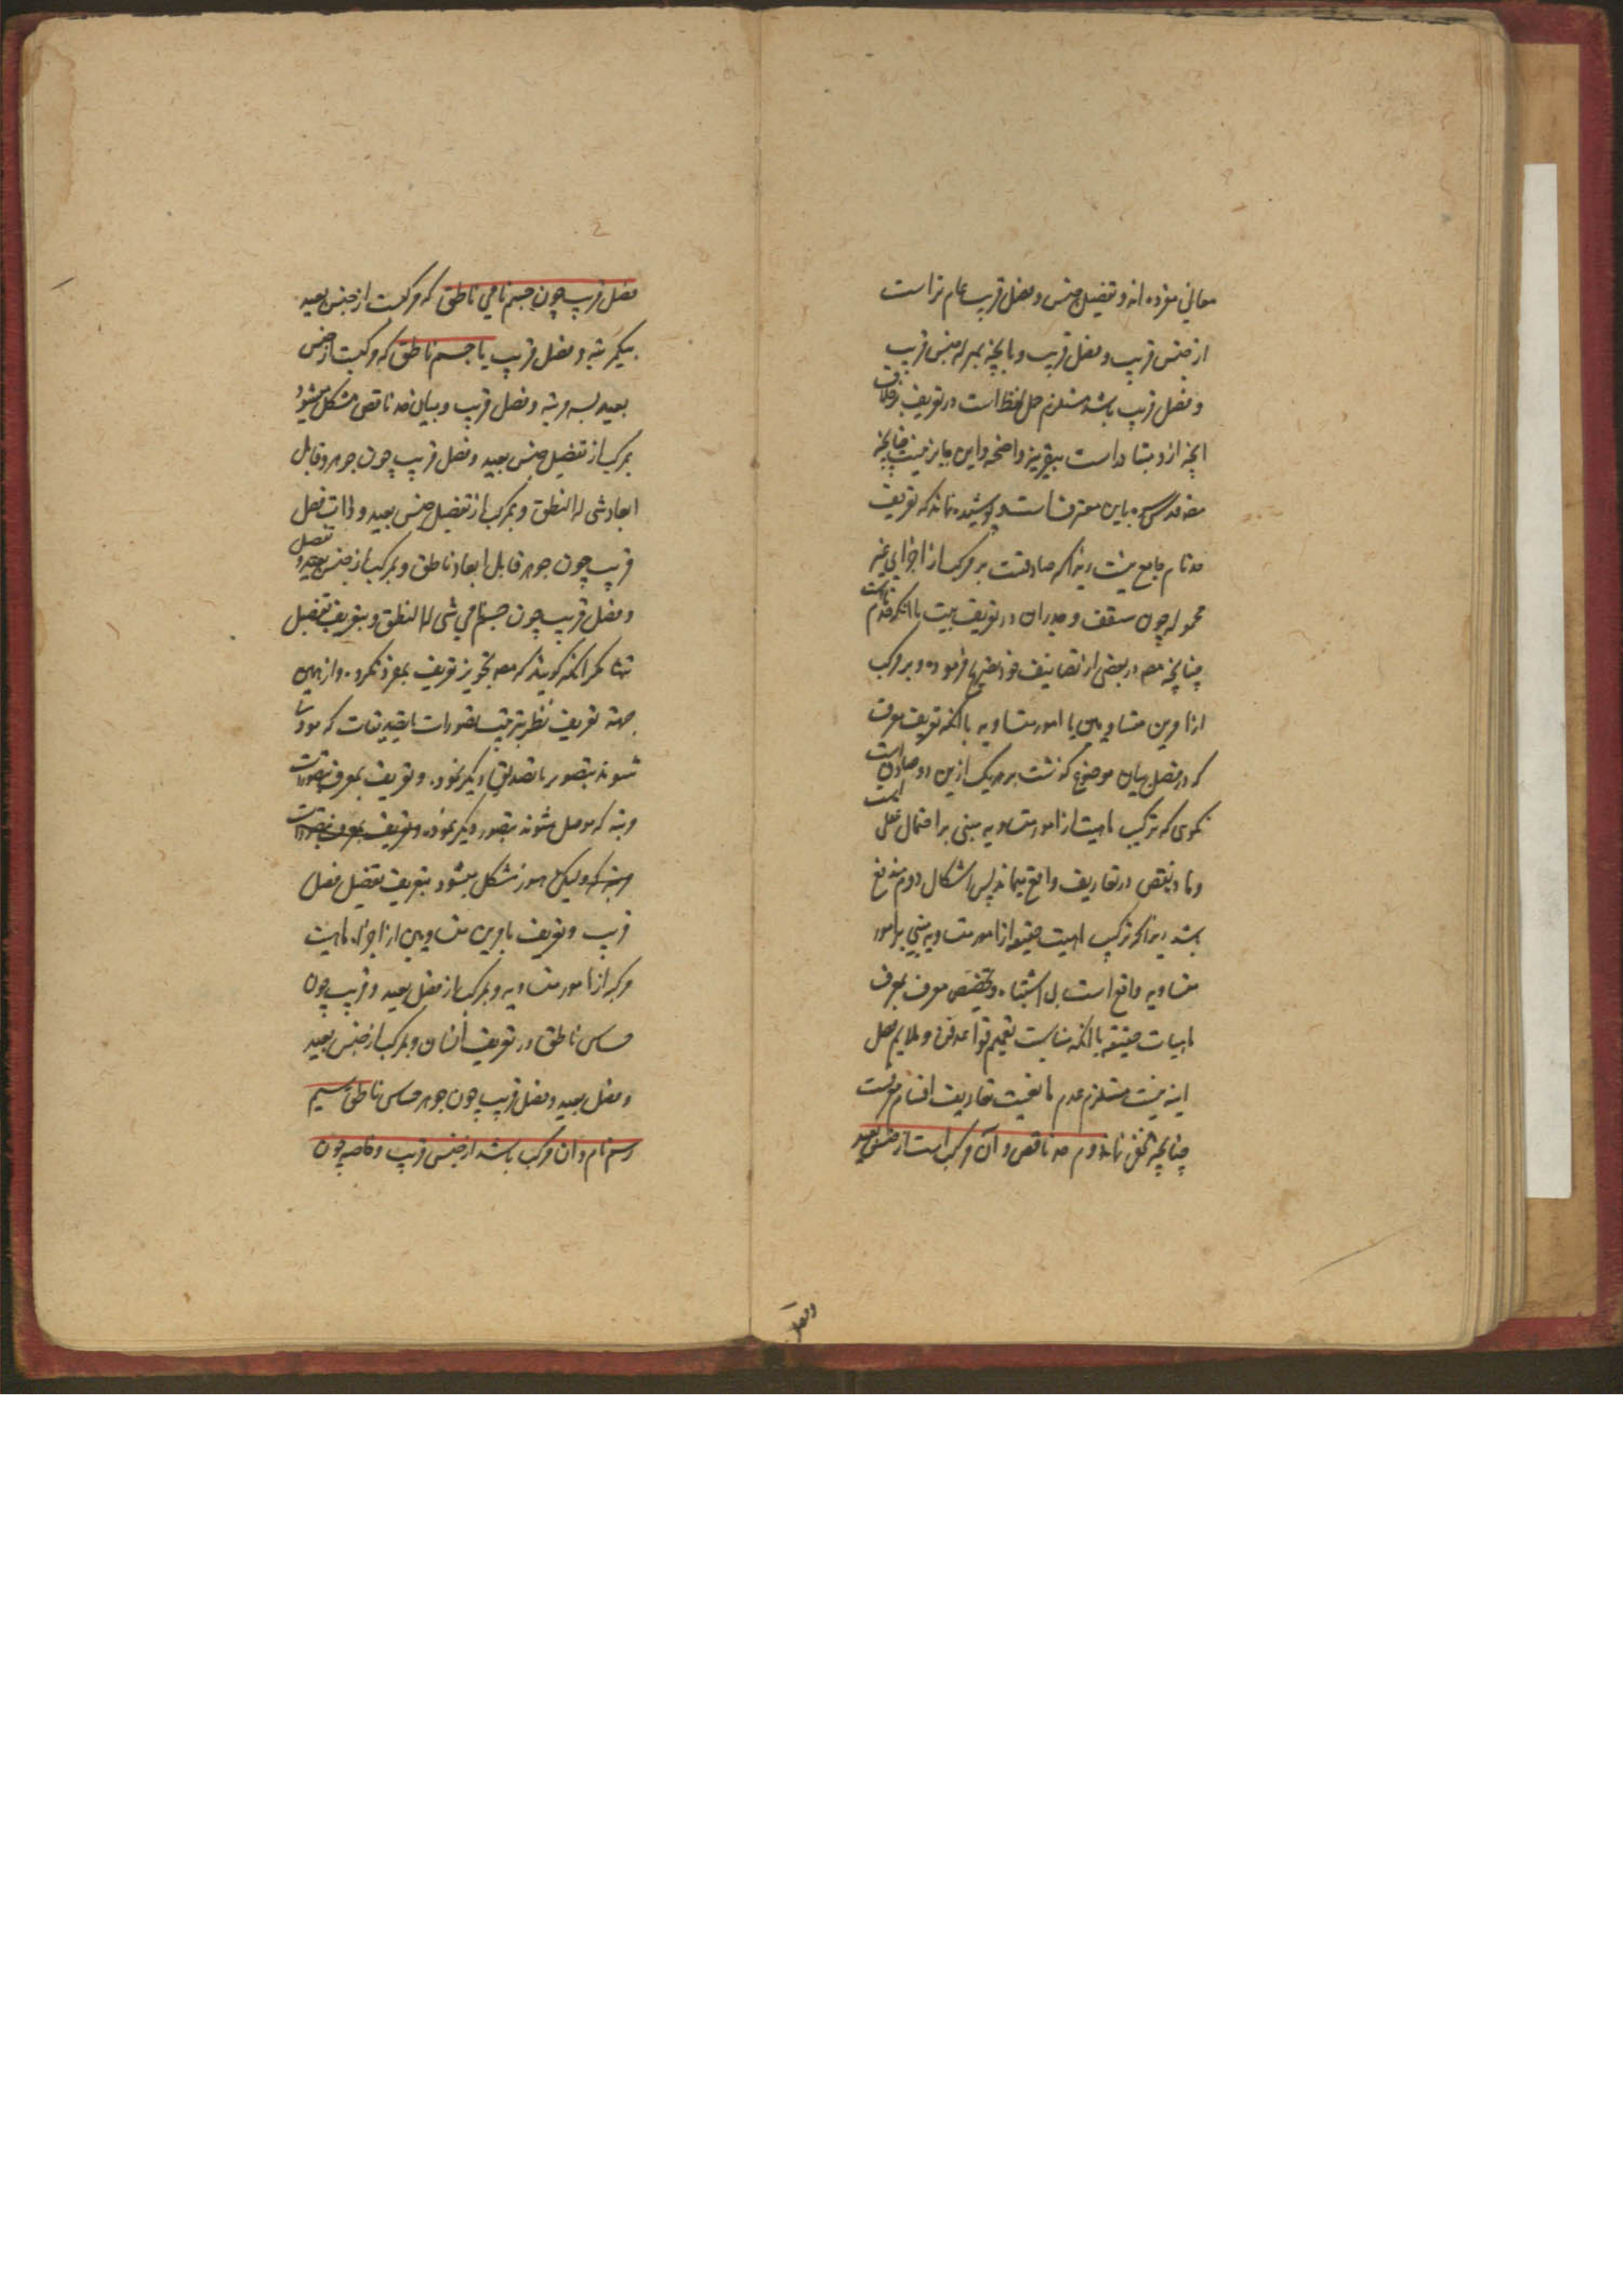 معانی مفرده‌اند و تفصیل جنس و فصل قریب عام تر است
از جنس قریب و فصل قریب و بانچه بمنزله جنس قریب
و فصل قریب باشد مستلزم حمل لفظ است در تعریف بر خلاف
انچه ازو متبادر است بیقرینه واضحه و این جایز نیست چنانچه
مصه قدس سره باین معترفست و پوشیده نماند که تعریف
حد تام جامع نیست زیرا که صادقست بر مرکب از اجزای غیر
محموله چون سقف و جدران در تعریف بیت با انکه حد تام است
چنانچه مصه در بعضی از تصانیف خود تصریح فرموده و بر مرکب
از امرین متساویین یا امور متساویه با انکه تعریف معرف
که در فصل بیان موضوع گذشت بر هر یک ازین دو صادق است
نگوی که ترکیب ماهیت از امور متساویه مبنی بر احتمال عقلی است
و ماده نقض در تعاریف واقع میباید پس اشکال دوم مندفع
باشد زیرا که ترکیب ماهیت حقیقیه از امور متساویه مبنی بر امور
متساویه واقع است بی اشتباه و تخصیص معرف بمعرف
ماهیات حقیقیه با انکه مناسب تعمیم قواعد فن و ملایم محل
اینه نیست مستلزم عدم مانعیت تعاریف اقسام معرفست
چنانچه مخفی نماند دوم حد ناقص و آن مرکب است از جنس بعید
و فصل
فصل قریب چون جسم نامی ناطق که مرکبست از جنس بعید
بیکمرتبه و فصل قریب یا جسم ناطق که مرکبست از جنس
بعید بسه مرتبه و فصل قریب و بیان حد ناقص مشکل میشود
بمرکب از تفصیل جنس بعید و فصل قریب چون جوهر و قابل
ابعاد شی له النطق و بمرکب از تفصیل جنس بعید و ذات فصل
قریب چون جوهر قابل ابعاد ناطق و بمرکب از جنس بعید و تفصیل
و فصل قریب چون جسم نامی شی له النطق و بتعریف بتفصیل
تنها مگر انکه گویند که مصه تجویز تعریف بمفرد نکرده و از همین
جهة تعریف نظر بترتیب تصورات یا تصدیقات که مودی
شوند بتصور یا تصدیق دیگر نموده و تعریف بمعرف بتصورات
مرتبه که موصل شوند بتصور دیگر نموده و تعریف بمعرف بتصورات
مرتبه که ولیکن هنوز مشکل میشود بتعریف بتفصیل فصل
قریب و تعریف بامرین متساویین از اجزاء ماهیت
مرکبه از امور متساویه و بمرکب از فصل بعید و قریب چون
حساس ناطق در تعریف انسان و بمرکب از جنس بعید
و فصل بعید و فصل قریب چون جوهر حساس ناطق سیم
رسم تام و ان مرکب باشد از جنس قریب و خاصه چون